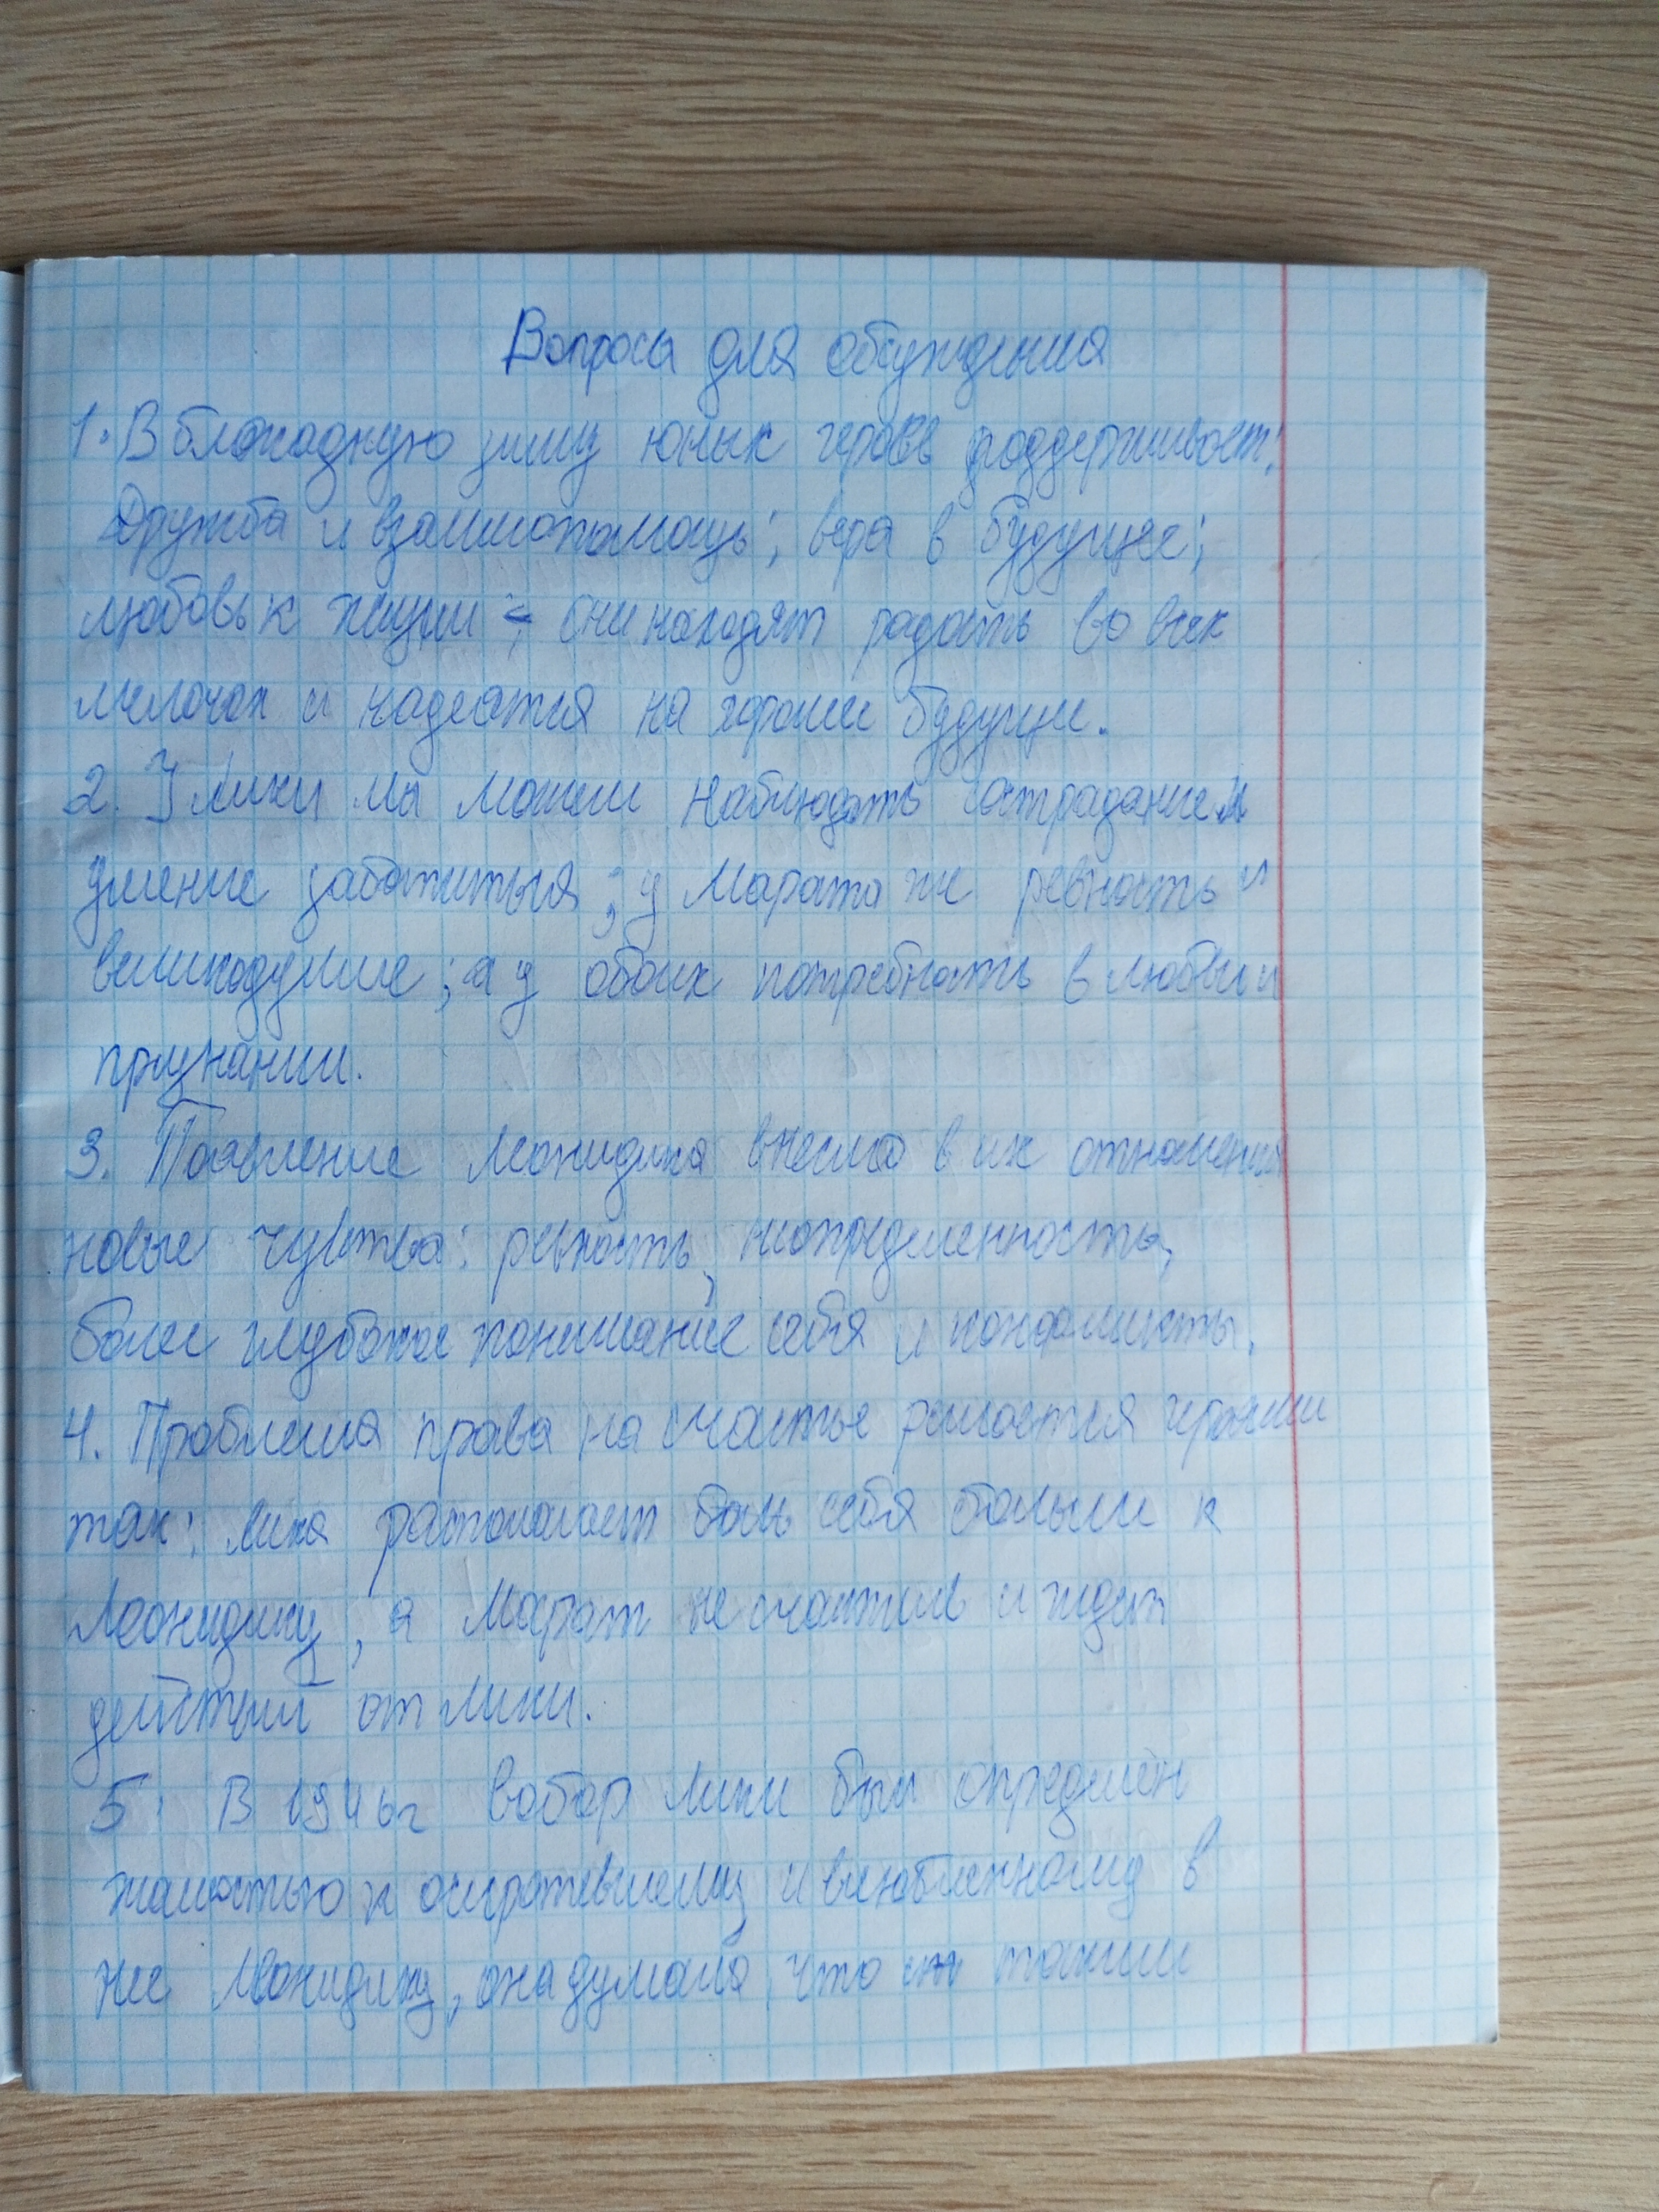 Вопросы для обсуждения
1. В блокадную зиму юных героев поддерживает:
Дружба и взаимопомощь; вера в будущее;
любовь к жизни - они находят радость во всех
мелочах и надеятся на хорошее будущее.
2. У Лики мы можем наблюдать сострадание и
умение заботиться; у Марата же ревность и
великодушие; а у обоих потребность в любви и
признании.
3. Появление Леонидика внесло в их отношения
новые чувства: ревность, неопределенность,
более глубокое понимание себя и конфликты.
4. Проблема права на счастье решается героями
так: Лика располагает себя больше к
Леонидику, а Марат не счастлив и ждет
действий от Лики.
5. В 1946г выбор Лики был определён
жалостью к осиротевшему и влюбленному в
неё Леонидику, она думала, что таким